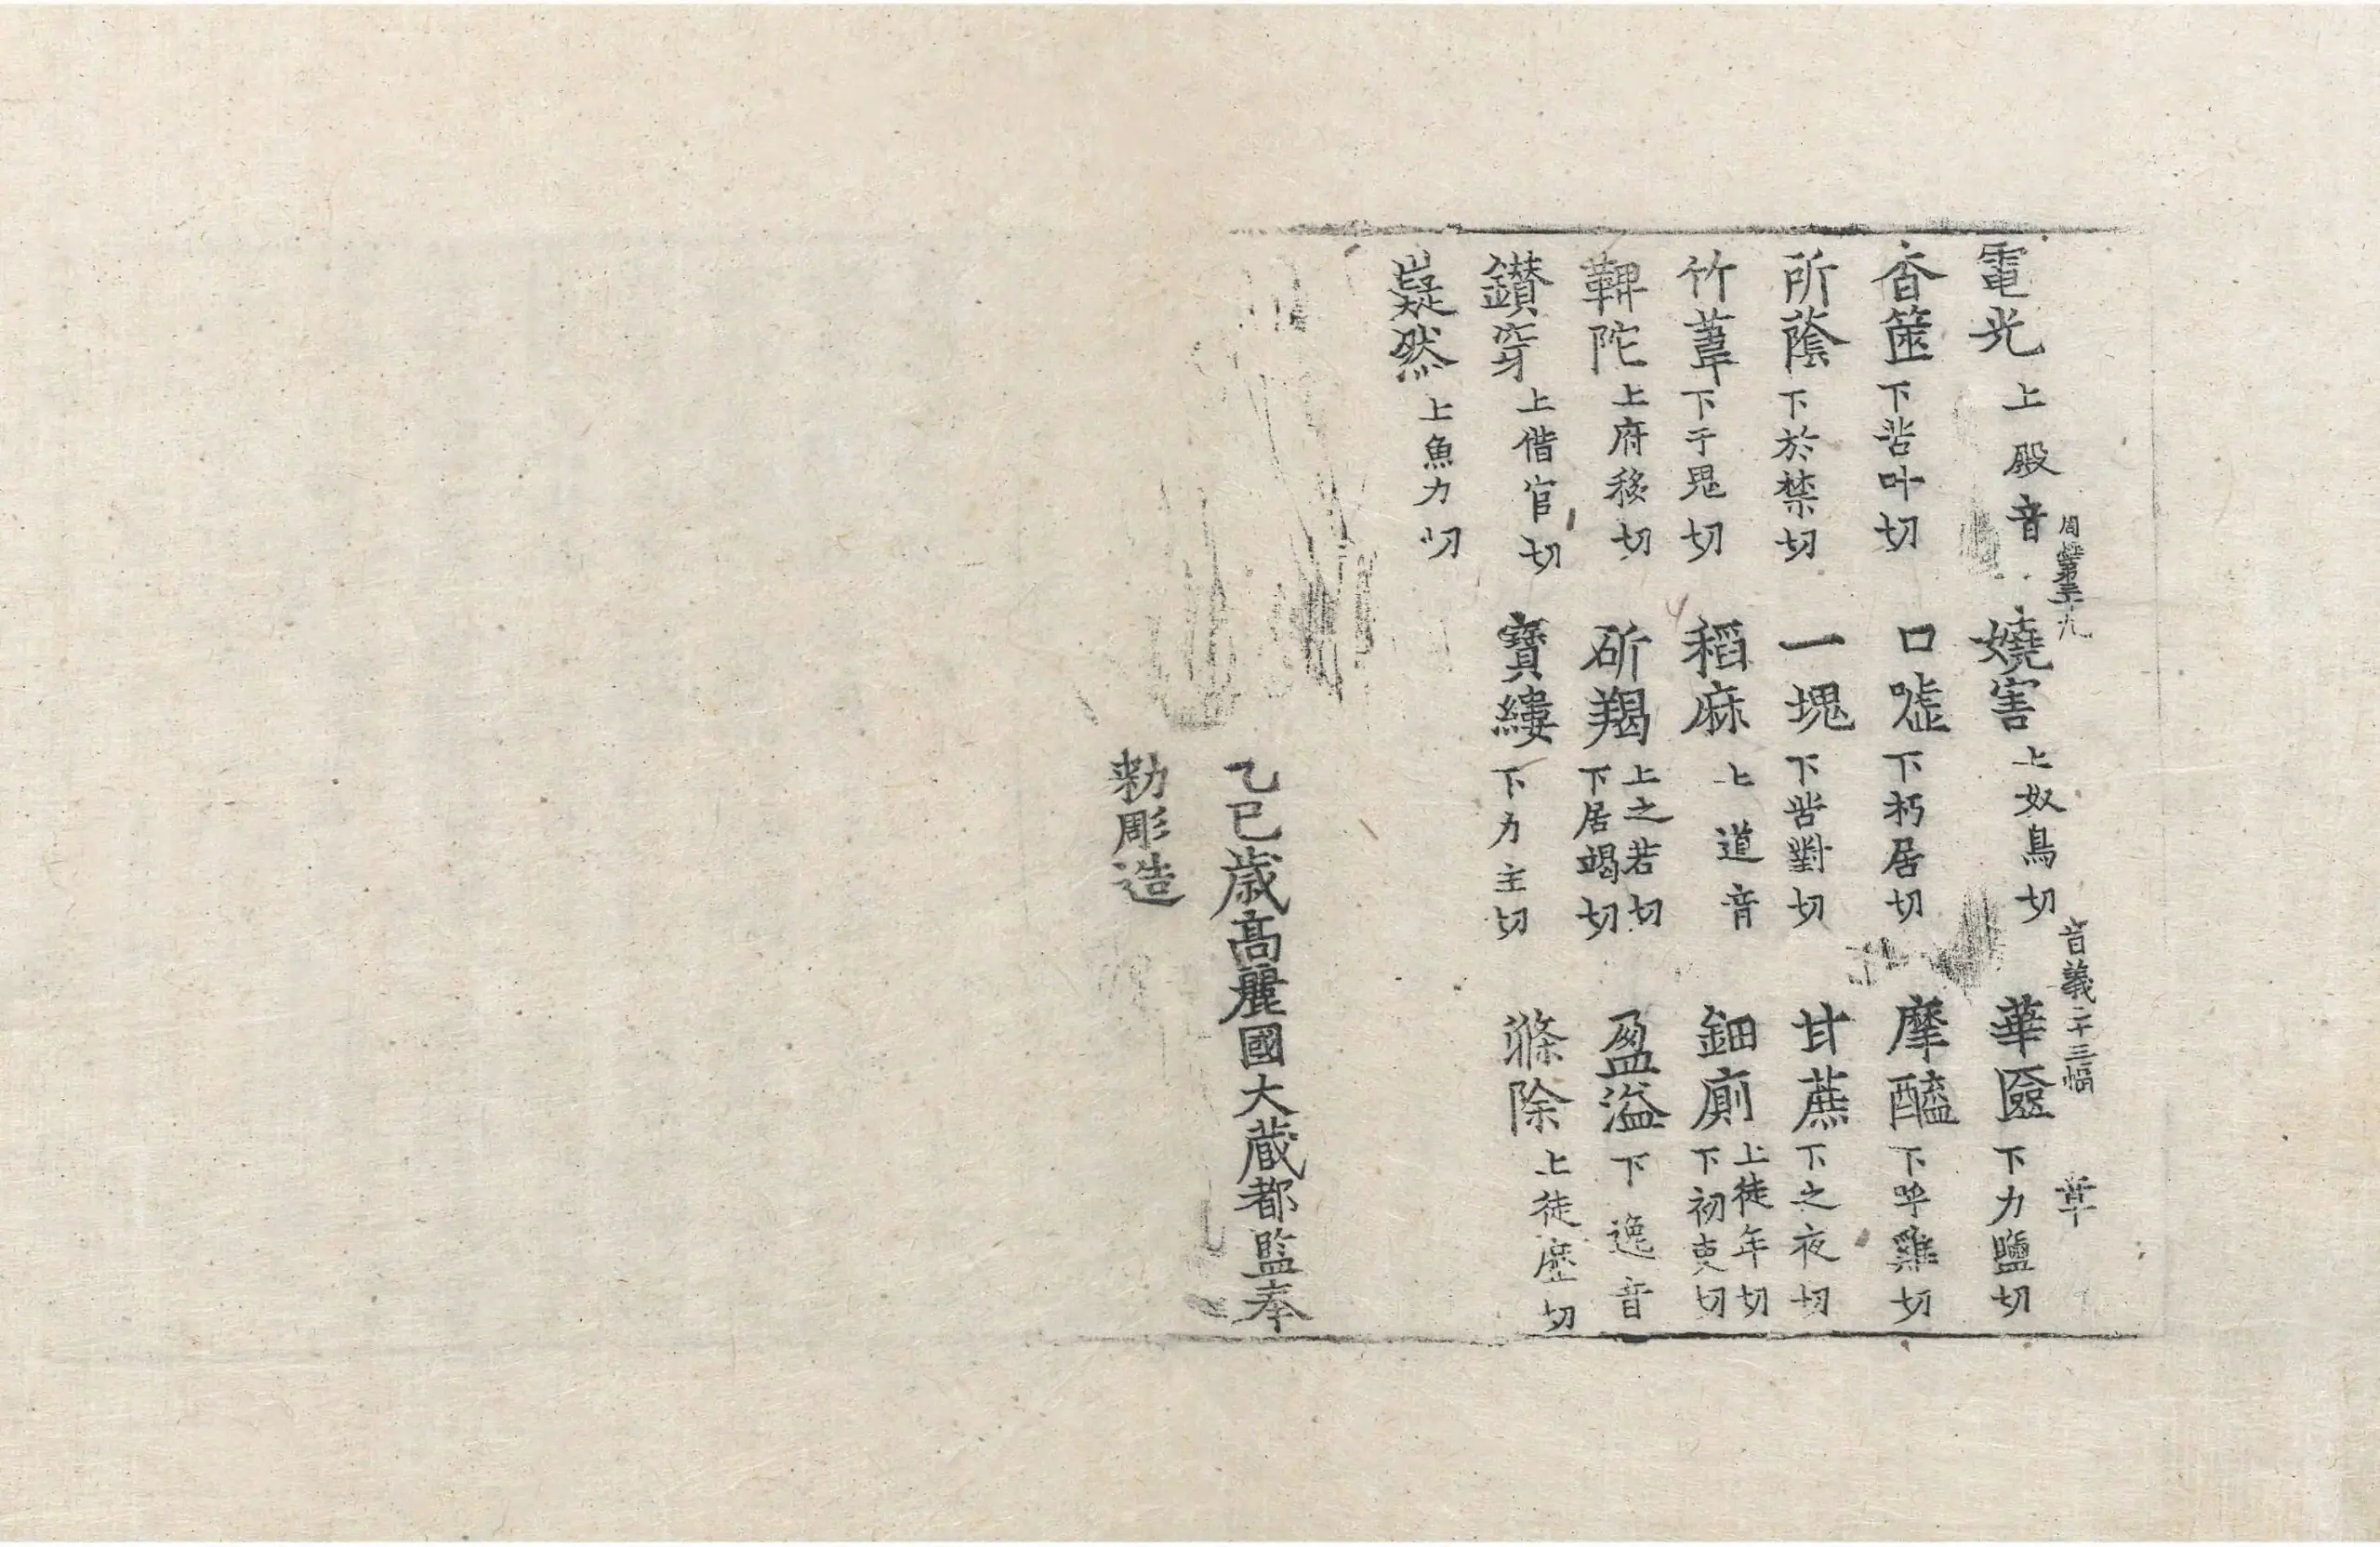 周經第三十九 音義二十三幅 草
電光上殿音 嬈害上奴鳥切 華匳下力鹽切
香篋下苦叶切 口噓下朽居切 摩醯下呼雞切
所蔭下於禁切 一塊下苦對切 甘蔗下之夜切
竹葦下于鬼切 稻麻上道音 鈿廁上徒年切下初吏切
鞞陀上府移切 斫羯上之若切下居竭切 盈溢下逸音
鑚穿上借官切 寶縷下力主切 滌除上徒歷切
嶷然上魚力切
乙巳歲高麗國大藏都監奉
勑彫造